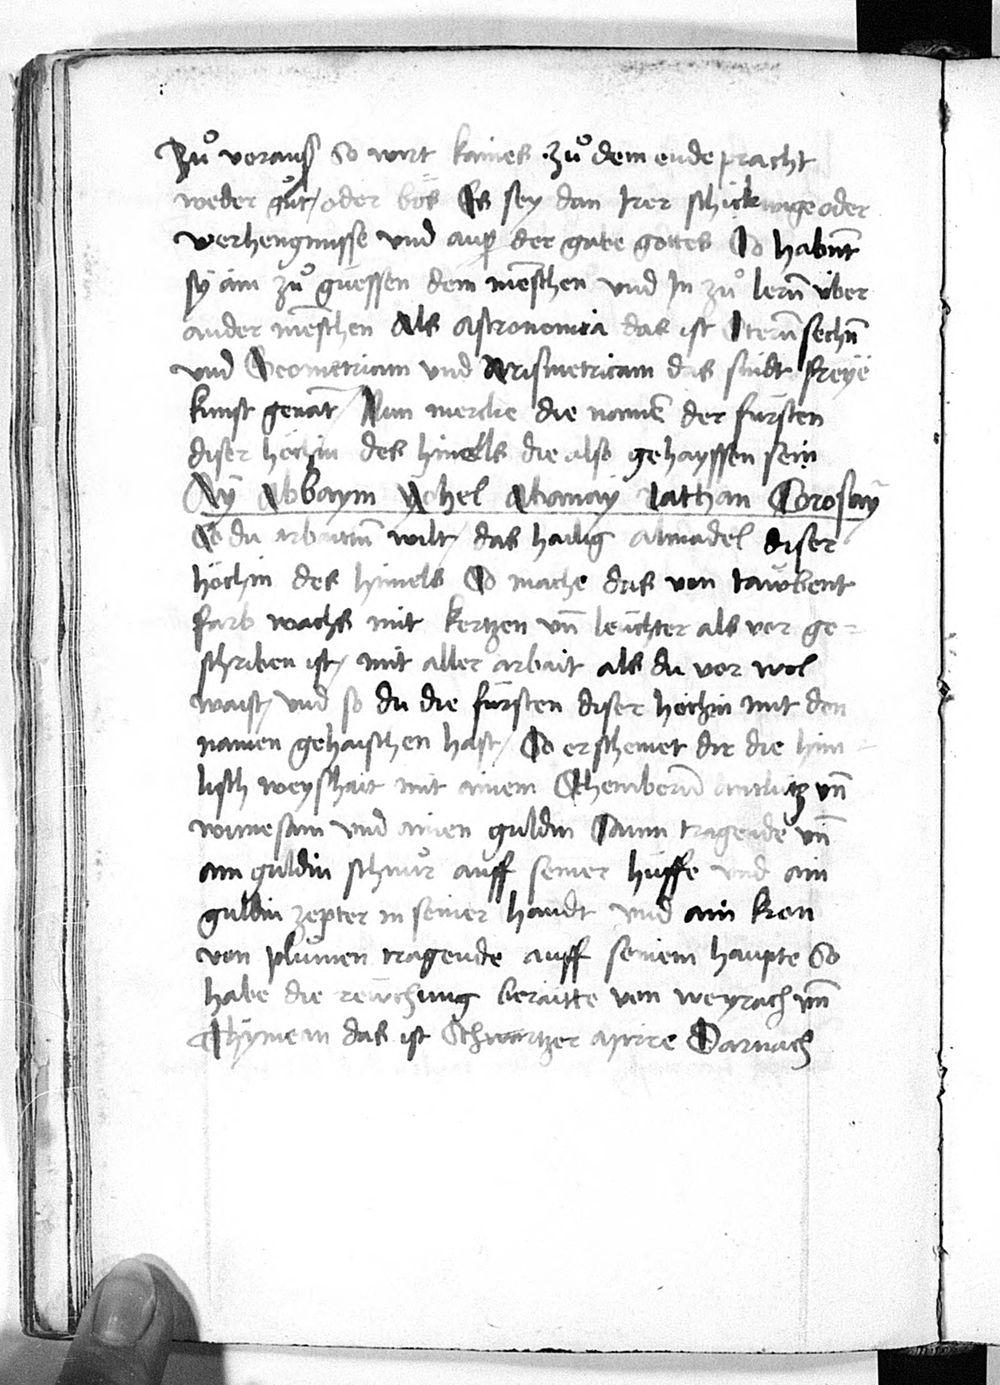 Zuͦ vorauß So wirt kaines zuͦ dem ende pracht
weder guͦt / oder bös Es sey dan Irer schickunge oder
verhengnusse und auß der gabe gottes So habnt̄
sÿ ain zuͦ guessen dem mēschen und In zuͦ lern̄ über
ander mēschen Als astronomia das ist Stern̄ sechn̄
und Geometricam und Arismetricam das sindt freye
kunst genāt / Nun mercke die namē der fürsten
diser höchin des himels die also gehayssen sein
Aÿ Abbaym Achel Abanaÿ Nathan Corosaÿ
So du arbaittn̄ wilt / das hailig almadel diser
höchin des himels So mache das von tawbent
farb wachs mit kertzen vn̄ leüchter als vor ge=
schriben ist / mit aller arbait als du vor wol
waist / und so du die fürsten diser höchin mit den
namen gehaischen hast / So erscheinet dir die him=
lisch weyshait mit ainem Scheinbern̄ antlütz vn̄
wunesam und ainen guldin Saum tragende vn̄
ain guldin schnuͦr auff seiner hüffe und ain
guldin zepter in seiner handt und ain kron
von pluͦmen tragende auff seinem haupte So
habe die rewchung beraitte von weyrach vn̄
Thymeam das ist Schwartzer mirre Darnach